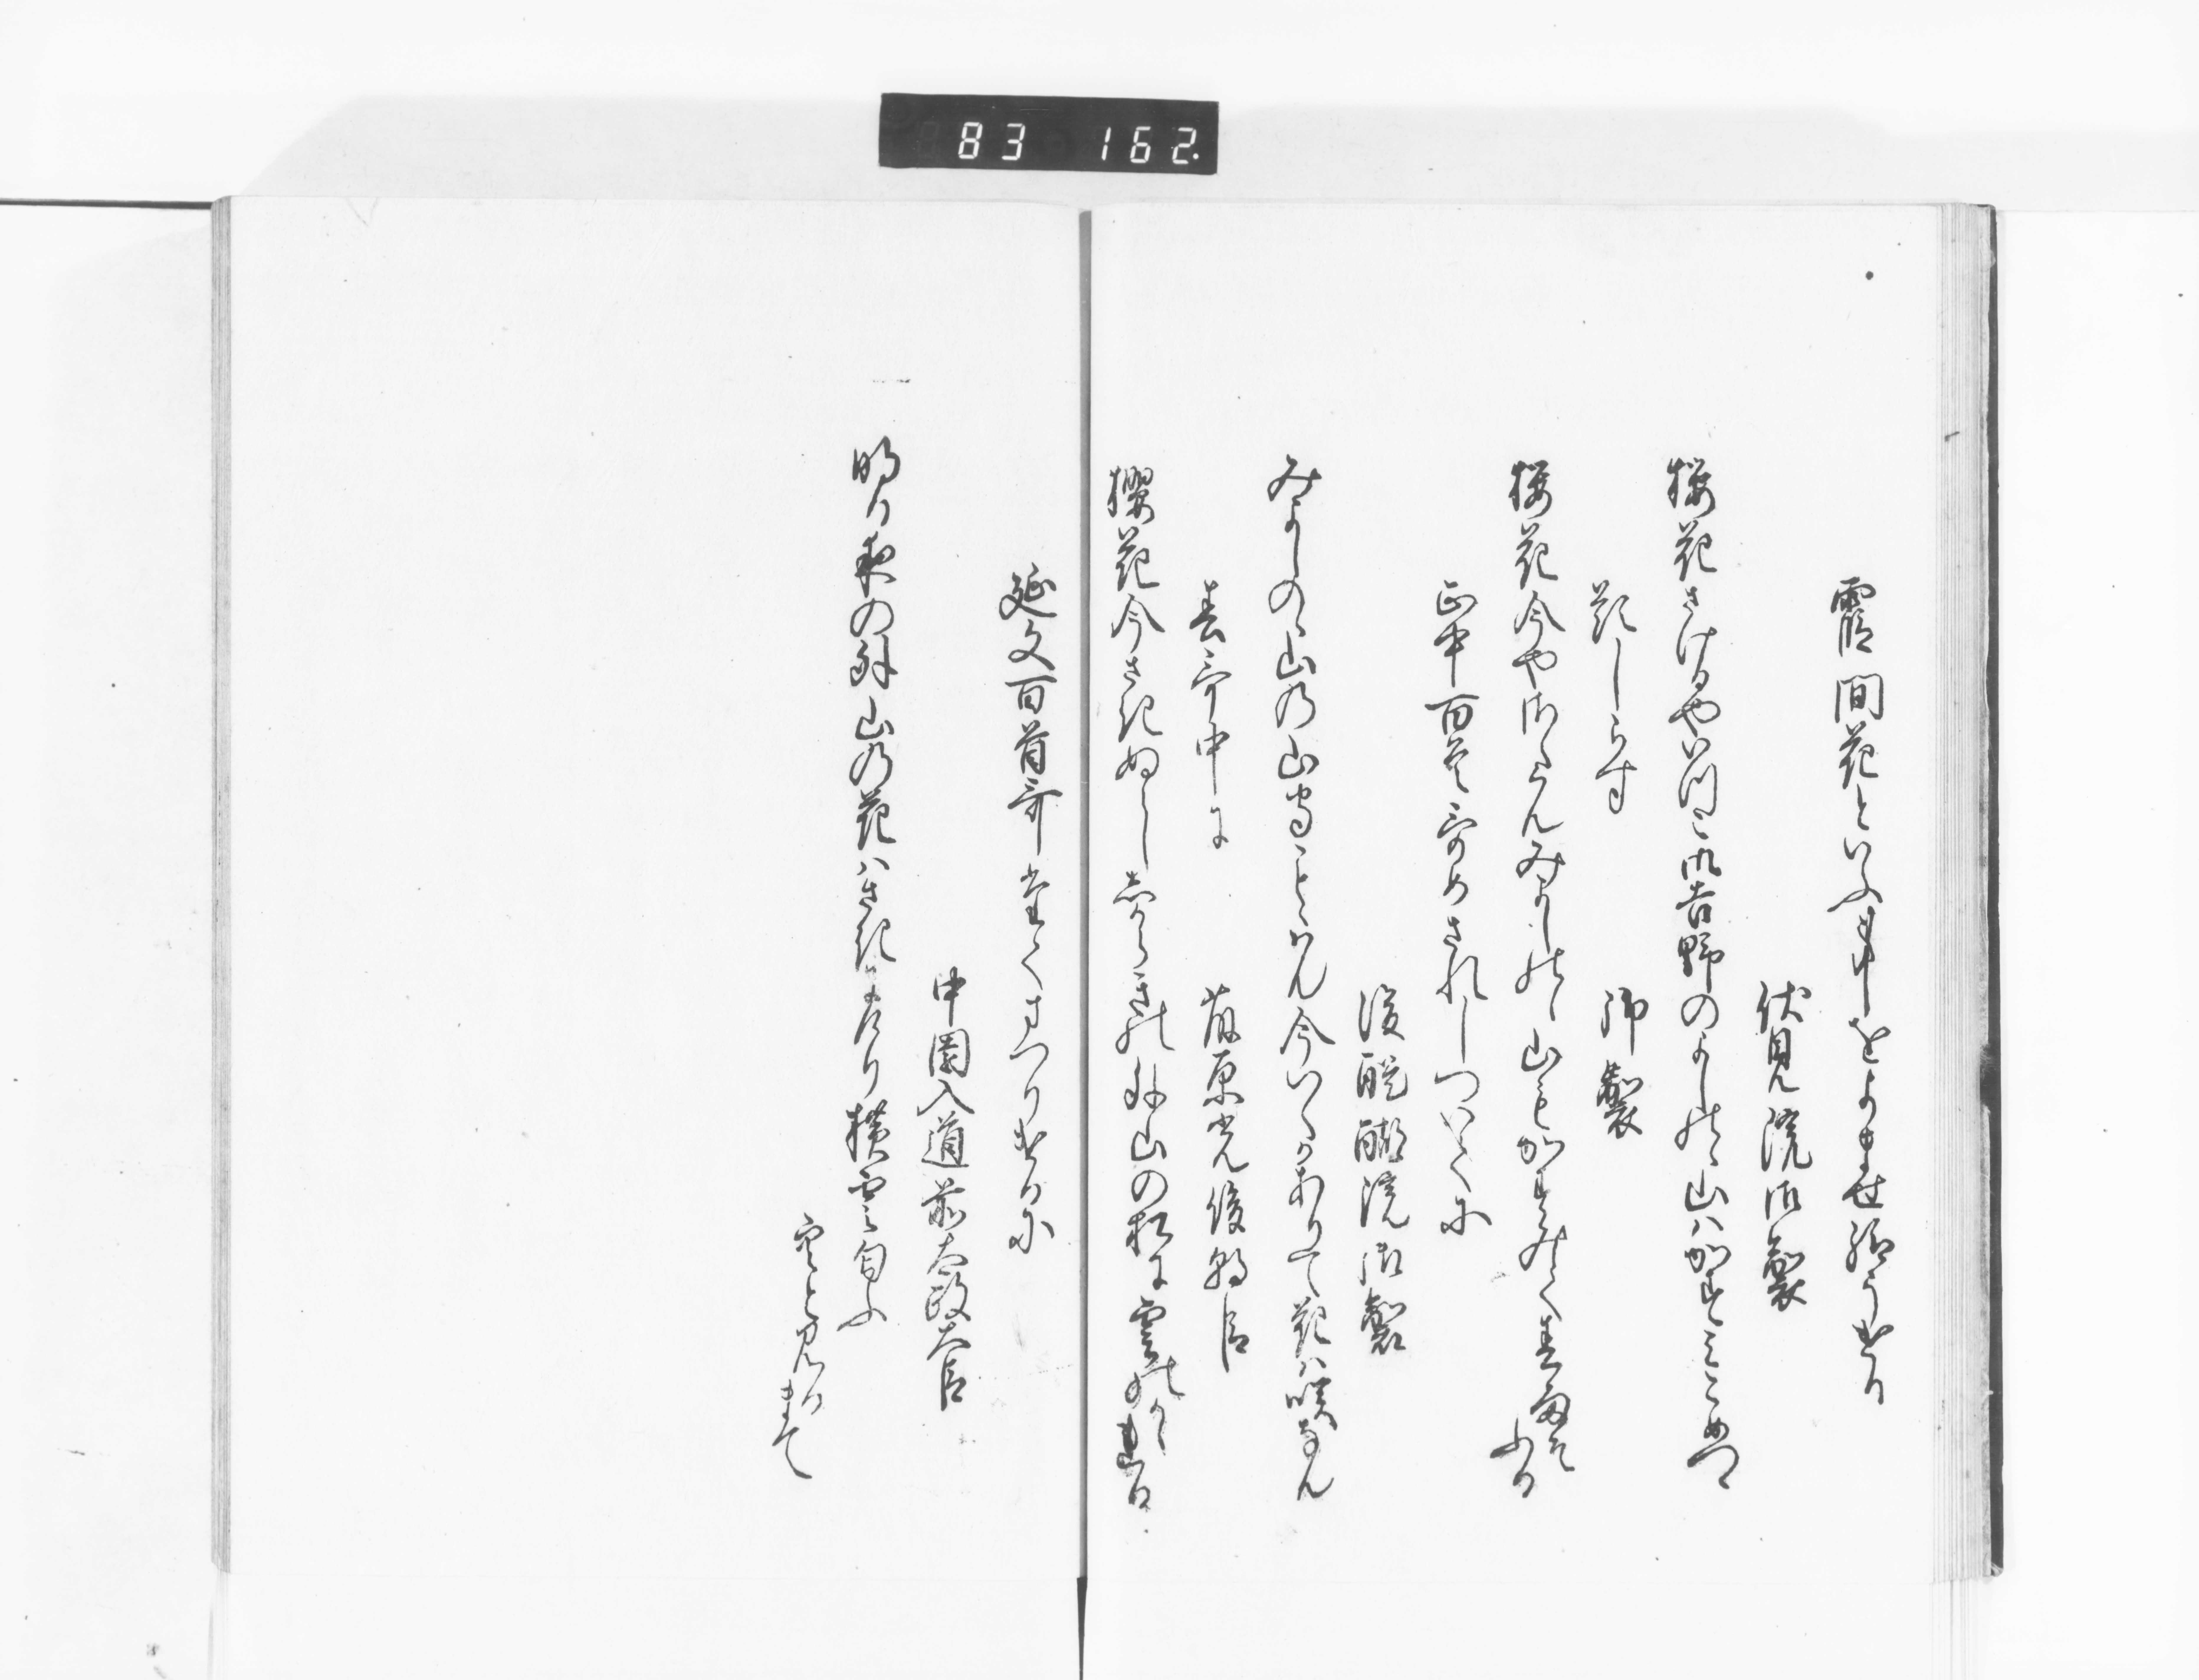 83 162.
霞間花といふ事をよませ給うける
伏見院御製
桜花さけるやいつこ御吉野のよしのゝ山ハかすミこめつゝ
題しらす
御製
桜花今やさくらんみよしのゝ山もかすみて春雨そ
ふる
正中百首哥めされしついてに
後醍醐院御製
みよしのゝ山の山守ことゝはん今いくかありて花ハ咲なん
春哥中に
藤原光俊朝臣
櫻花今さきぬらししからきの外山の松に雲のかゝれる
延文百首哥たてまつりけるに
中園入道前太政大臣
明る夜の外山の花ハさきにけり横雲匂ふ
空と見るまて